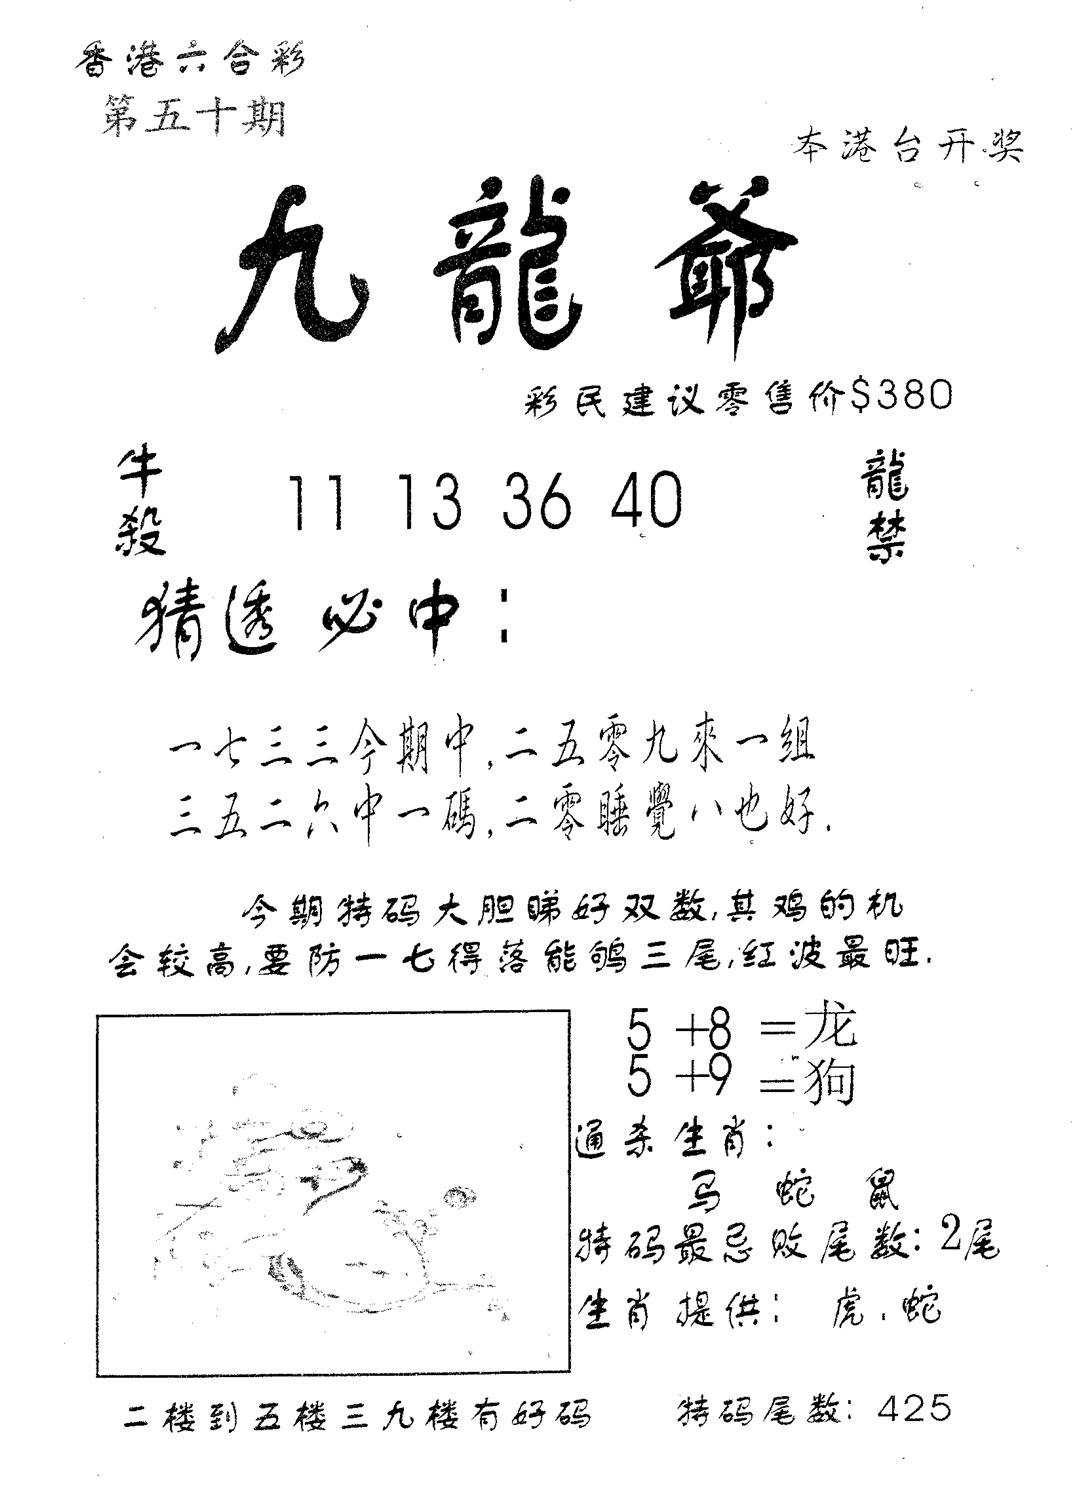 香港六合彩
第五十期
本港台开奖
九龍爺
彩民建议零售价$380
牛殺
11 13 36 40
龍禁
猜透必中：
一七三三今期中,二五零九來一組
三五二六中一碼,二零睡覺八也好.
今期特码大胆睇好双数,其鸡的机
会较高,要防一七得落能鸲三尾,红波最旺.
5+8=龙
5+9=狗
通杀生肖：
马 蛇 鼠
特码最忌败尾数：2尾
生肖提供：虎.蛇
二楼到五楼三九楼有好码
特码尾数：425